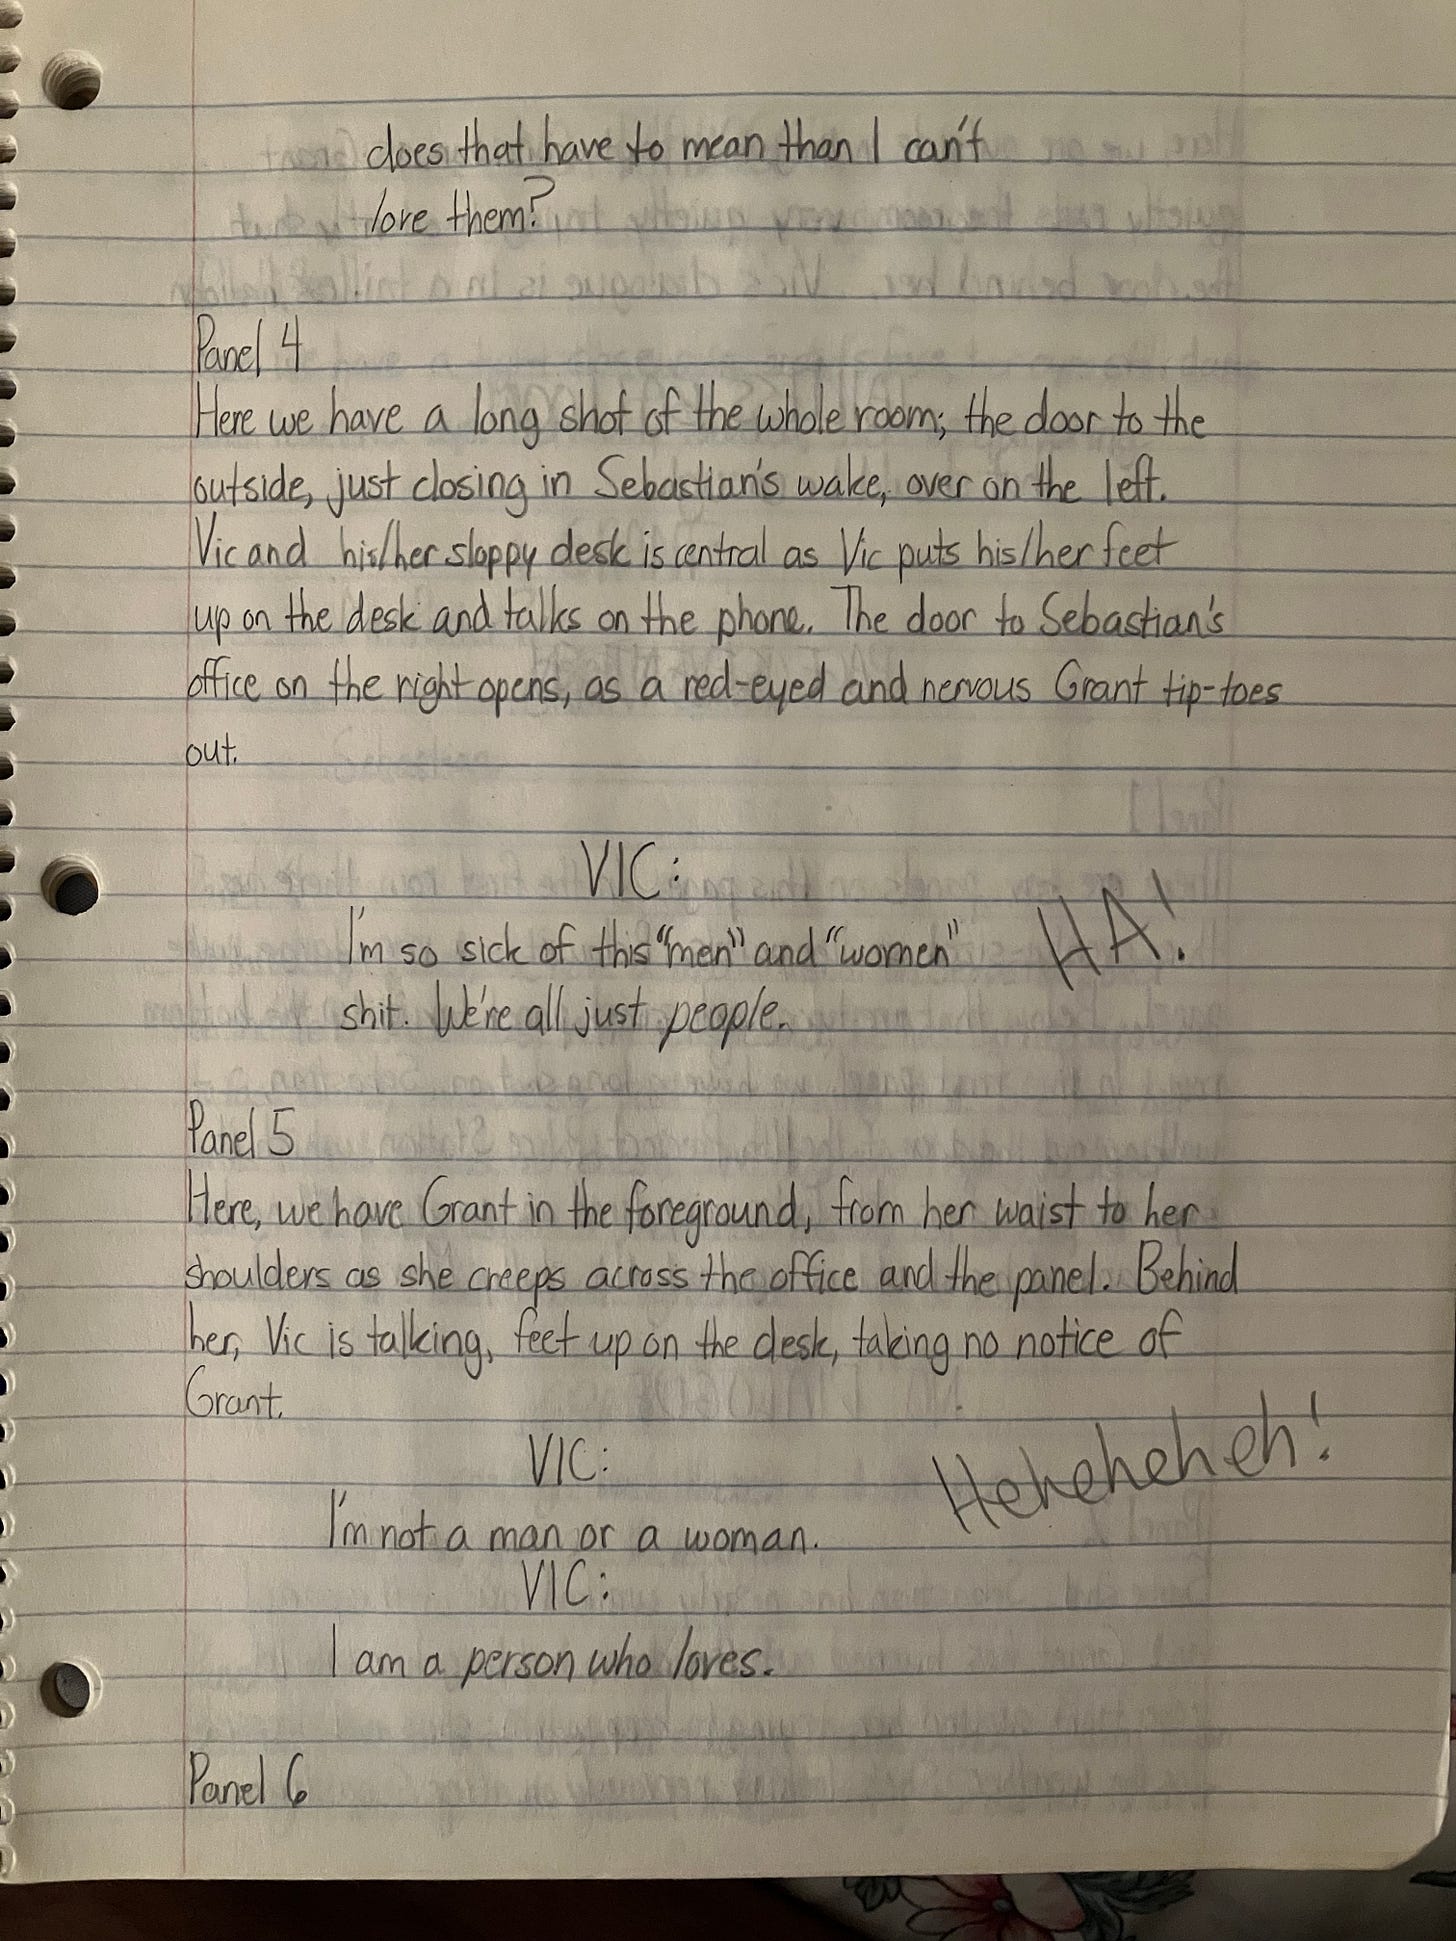 does that have to mean than I can't
love them?
Panel 4
Here we have a long shot of the whole room; the door to the
outside, just closing in Sebastian's wake, over on the left.
Vic and his/her sloppy desk is central as Vic puts his/her feet
up on the desk and talks on the phone. The door to Sebastian's
office on the right opens, as a red-eyed and nervous Grant tip-toes
out.
VIC:
I'm so sick of this "men" and "women"
HA!
shit. We're all just people.
Panel 5
Here, we have Grant in the foreground, from her waist to her
shoulders as she creeps across the office and the panel. Behind
her, Vic is talking, feet up on the desk, taking no notice of
Grant.
VIC:
Heheheheh!
I'm not a man or a woman.
VIC:
I am a person who loves.
Panel 6